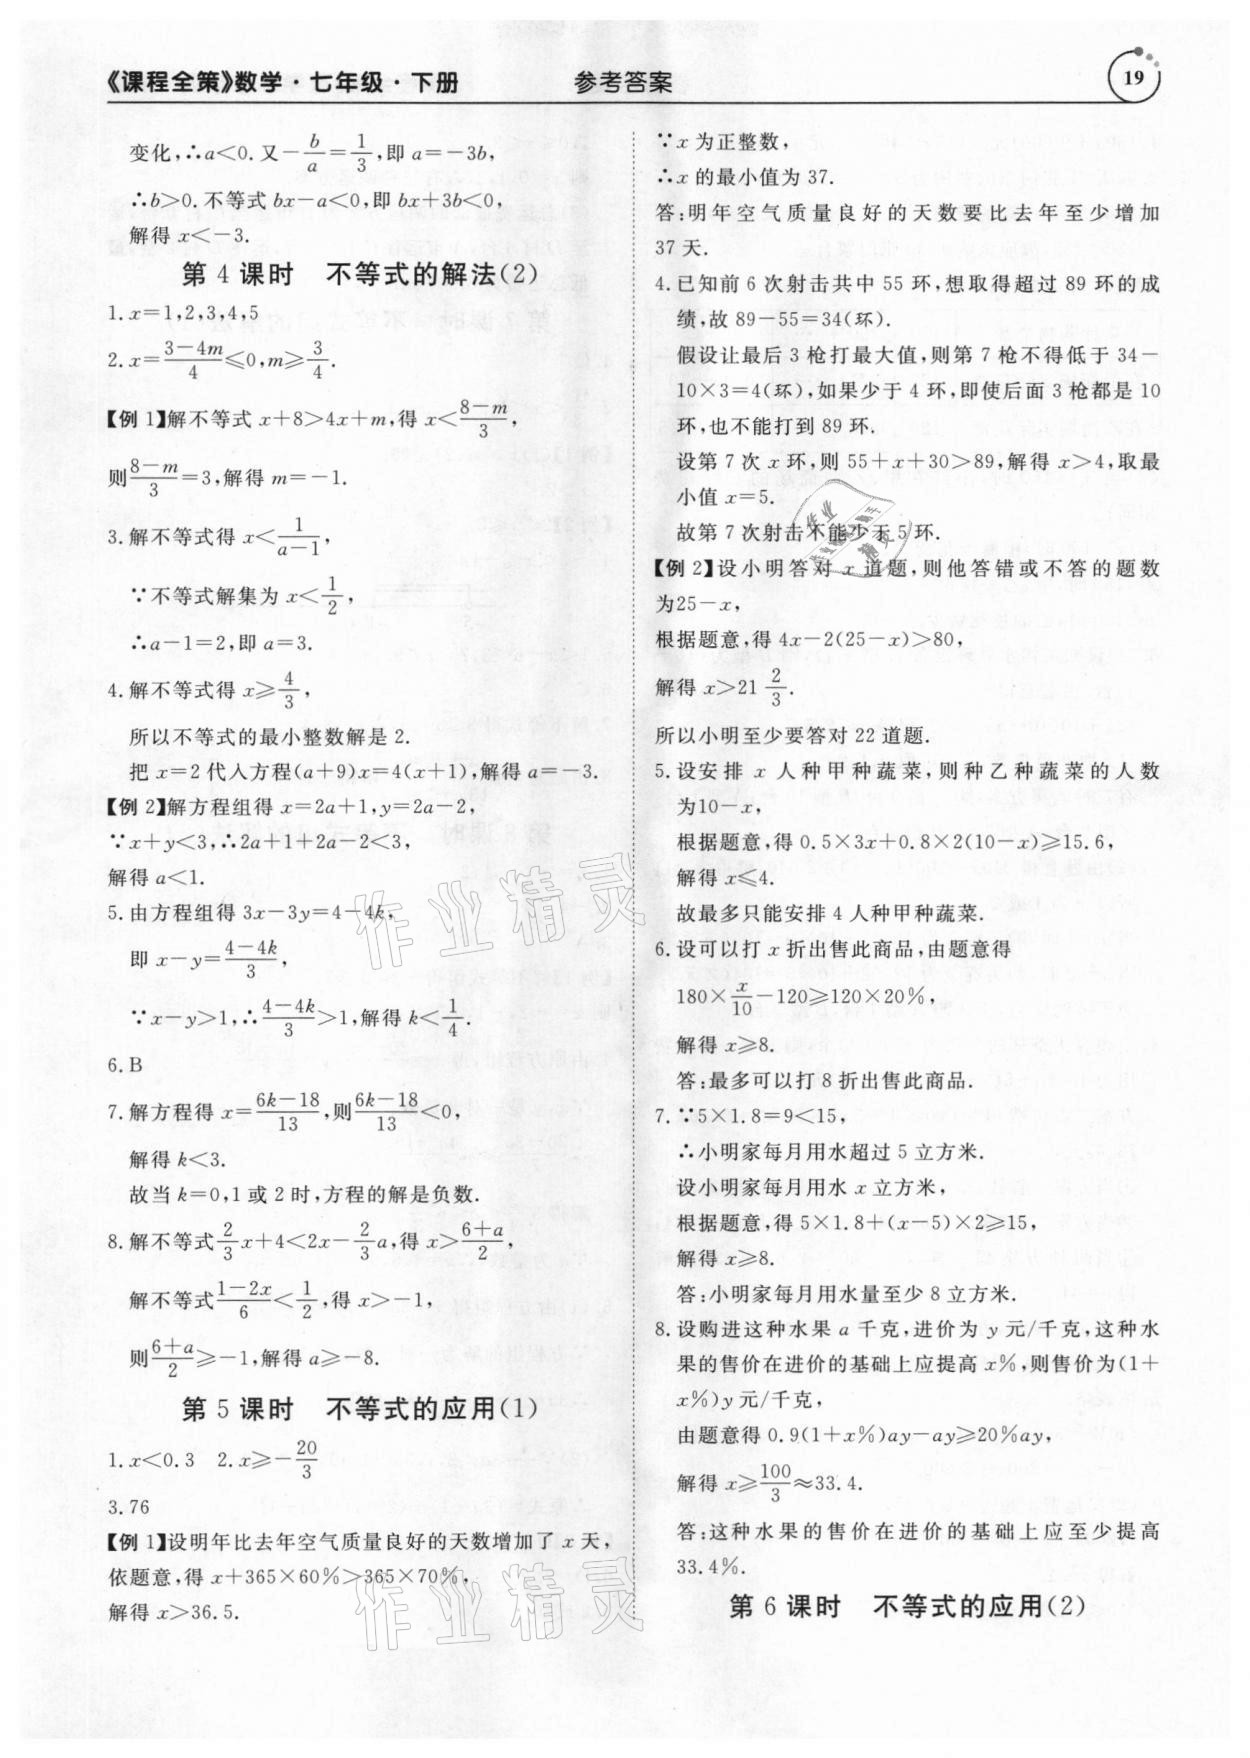 《课程全策》数学·七年级·下册
参考答案
19
变化,∴a<0.又-b/a=1/3,即 a=-3b,
∴b>0.不等式 bx-a<0,即 bx+3b<0,
解得 x<-3.
第 4 课时 不等式的解法(2)
1.x=1,2,3,4,5
2.x=(3-4m)/4≤0,m≥3/4.
【例 1】解不等式 x+8>4x+m,得 x<(8-m)/3,
则(8-m)/3=3,解得 m=-1.
3.解不等式得 x<1/(a-1),
∵不等式解集为 x<1/2,
∴a-1=2,即 a=3.
4.解不等式得 x≥4/3,
所以不等式的最小整数解是 2.
把 x=2 代入方程(a+9)x=4(x+1),解得 a=-3.
【例 2】解方程组得 x=2a+1,y=2a-2,
∵x+y<3,∴2a+1+2a-2<3,
解得 a<1.
5.由方程组得 3x-3y=4-4k,
即 x-y=(4-4k)/3,
∵x-y>1,∴(4-4k)/3>1,解得 k<1/4.
6.B
7.解方程得 x=(6k-18)/13,则(6k-18)/13<0,
解得 k<3.
故当 k=0,1 或 2 时,方程的解是负数.
8.解不等式2/3x+4<2x-2/3a,得 x>(6+a)/2,
解不等式(1-2x)/6<1/2,得 x>-1,
则(6+a)/2≥-1,解得 a≥-8.
第 5 课时 不等式的应用(1)
1.x<0.3 2.x≥-20/3
3.76
【例 1】设明年比去年空气质量良好的天数增加了 x 天,
依题意,得 x+365×60%>365×70%,
解得 x>36.5.
∵x 为正整数,
∴x 的最小值为 37.
答:明年空气质量良好的天数要比去年至少增加
37 天.
4.已知前 6 次射击共中 55 环,想取得超过 89 环的成
绩,故 89-55=34(环).
假设让最后 3 枪打最大值,则第 7 枪不得低于 34-
10×3=4(环),如果少于 4 环,即使后面 3 枪都是 10
环,也不能打到 89 环.
设第 7 次 x 环,则 55+x+30>89,解得 x>4,取最
小值 x=5.
故第 7 次射击不能少于 5 环.
【例 2】设小明答对 x 道题,则他答错或不答的题数
为25-x,
根据题意,得 4x-2(25-x)>80,
解得 x>21 2/3.
所以小明至少要答对 22 道题.
5.设安排 x 人种甲种蔬菜,则种乙种蔬菜的人数
为10-x,
根据题意,得 0.5×3x+0.8×2(10-x)≥15.6,
解得 x≤4.
故最多只能安排 4 人种甲种蔬菜.
6.设可以打 x 折出售此商品,由题意得
180×x/10-120≥120×20%,
解得 x≥8.
答:最多可以打 8 折出售此商品.
7.∵5×1.8=9<15,
∴小明家每月用水超过 5 立方米.
设小明家每月用水 x 立方米,
根据题意,得 5×1.8+(x-5)×2≥15,
解得 x≥8.
答:小明家每月用水量至少 8 立方米.
8.设购进这种水果 a 千克,进价为 y 元/千克,这种水
果的售价在进价的基础上应提高 x%,则售价为(1+
x%)y 元/千克,
由题意得 0.9(1+x%)ay-ay≥20%ay,
解得 x≥100/3≈33.4.
答:这种水果的售价在进价的基础上应至少提高
33.4%.
第 6 课时 不等式的应用(2)
作业精灵
作业精灵